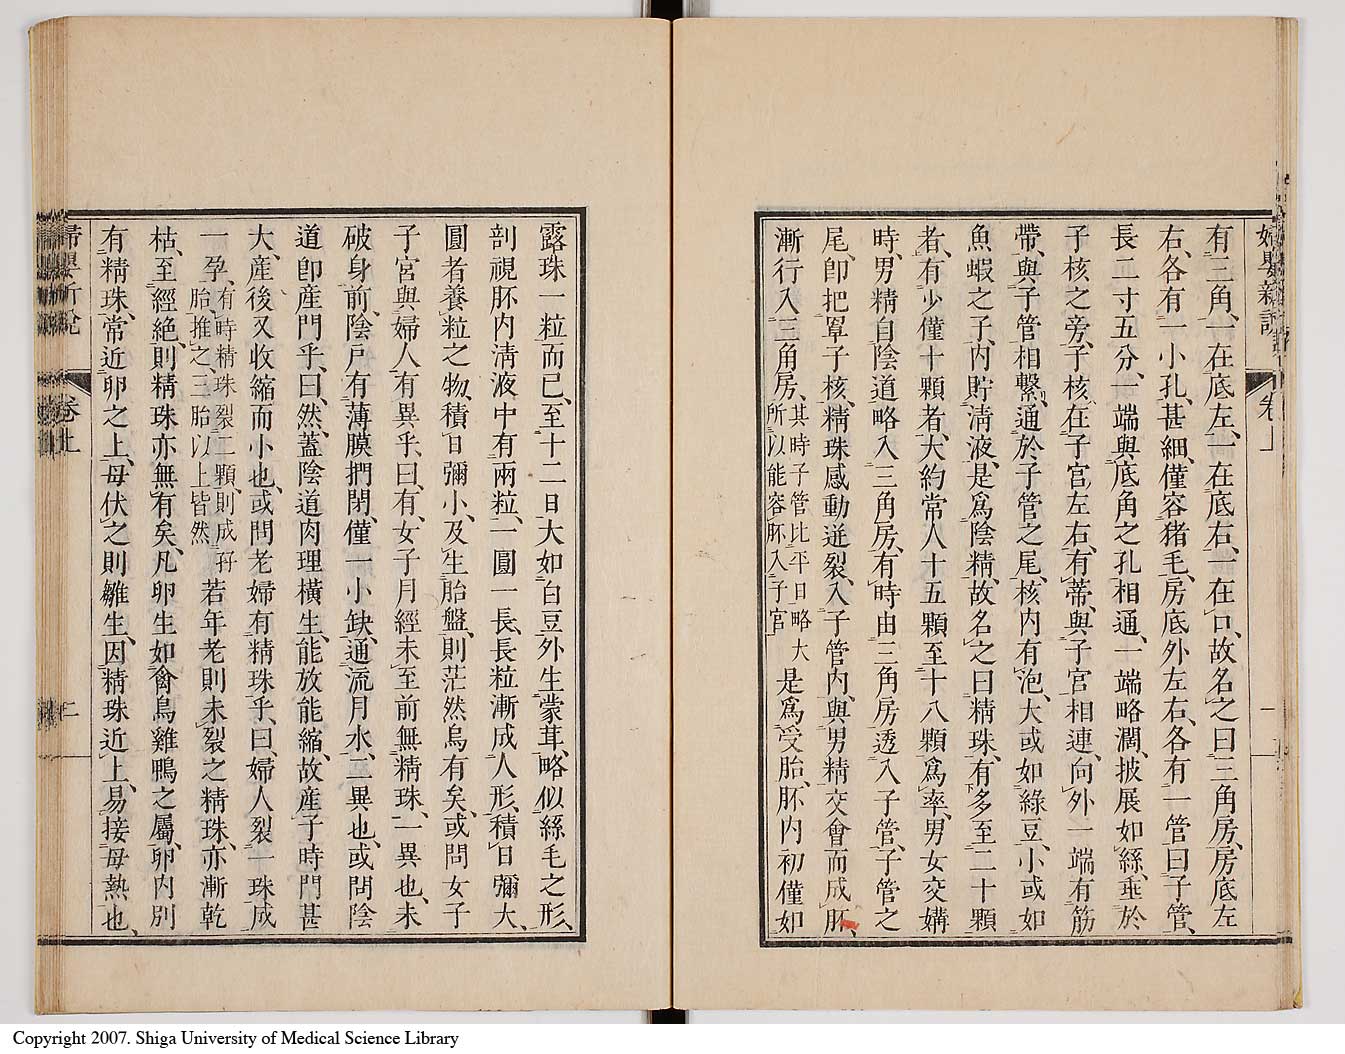 婦嬰新說 卷上
有三角、一在底左、一在底右、一在口、故名之曰三角房、房底左
右、各有一小孔、甚細、僅容猪毛、房底外左右、各有一管曰子管、
長二寸五分、一端與底角之孔相通、一端略濶、披展如絲、垂於
子核之旁、子核在子宮左右、有蒂、與子宮相連、向外一端有筋
帶、與子管相繫、通於子管之尾、核內有泡、大或如綠豆、小或如
魚蝦之子、內貯淸液、是爲陰精、故名之曰精珠、有多至二十顆
者、有少僅十顆者、大約常人十五顆至十八顆爲率、男女交媾
時、男精自陰道略入三角房、有時由三角房透入子管、子管之
尾、卽把罩子核、精珠感動迸裂、入子管內、與男精交會而成胚、
漸行入三角房、其時子管比平日略大所以能容胚入子宮是爲受胎、胚內初僅如
露珠一粒而已、至十二日大如白豆外生蒙茸、略似絲毛之形、
剖視胚內淸液中有兩粒、一圓一長、長粒漸成人形、積日彌大、
圓者養粒之物、積日彌小、及生胎盤、則茫然烏有矣、或問女子
子宮與婦人有異乎、曰、有、女子月經未至前無精珠、一異也、未
破身前、陰戶有薄膜捫閉、僅一小缺、通流月水、二異也、或問陰
道卽產門乎、曰、然、蓋陰道肉理橫生、能放能縮、故產子時門甚
大、產後又收縮而小也、或問老婦有精珠乎、曰、婦人裂一珠成
一孕、有時精珠裂二顆、則成孖胎推之三胎以上皆然若年老則未裂之精珠、亦漸乾
枯、至經絕、則精珠亦無有矣、凡卵生如禽鳥雞鴨之屬、卵內別
有精珠、常近卵之上、母伏之則雛生、因精珠近上、易接母熱也、
婦嬰新說 卷上 二
Copyright 2007. Shiga University of Medical Science Library